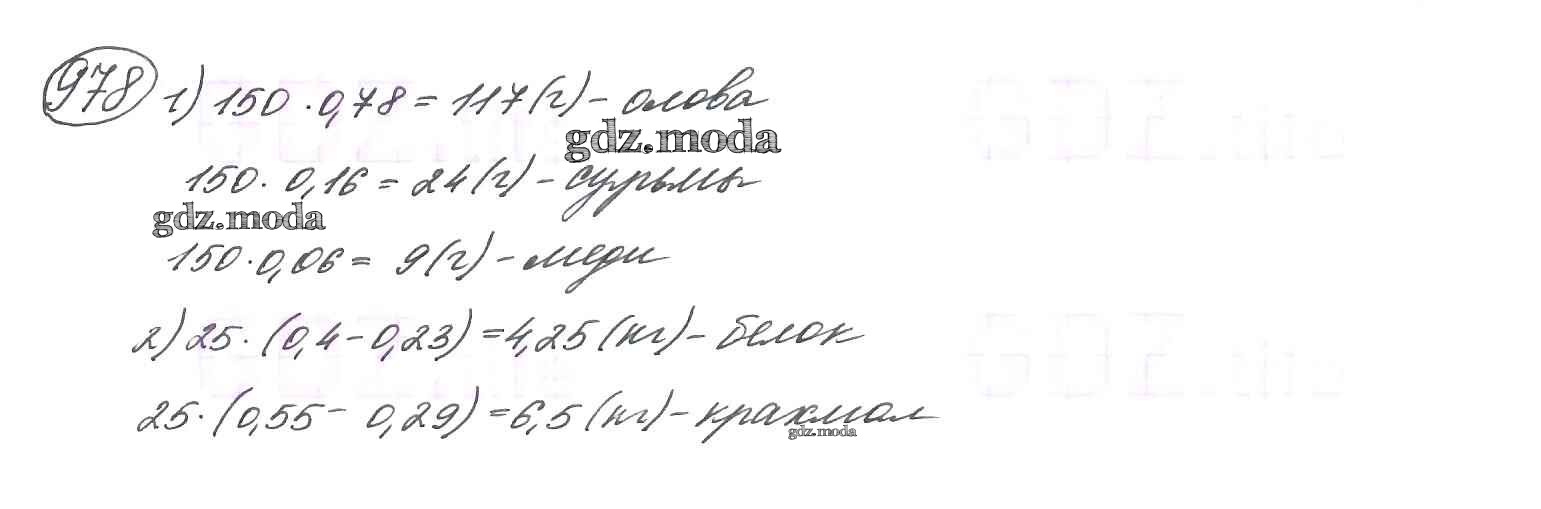 978 1) 150 · 0,78 = 117 (г) – олова
gdz.moda
150 · 0,16 = 24 (г) – сурьмы
gdz.moda
150 · 0,06 = 9 (г) – меди
2) 25 · (0,4 – 0,23) = 4,25 (кг) – белок
25 · (0,55 – 0,29) = 6,5 (кг) – крахмал
gdz.moda